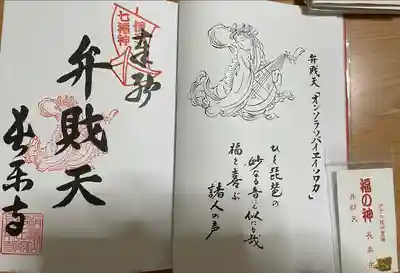 七福神
奉拝
弁財天
長楽寺
弁財天「オンソラソバテイエイソワカ」
ひく琵琶の
妙なる音に似る哉
福を喜ぶ
諸人の声
福の神
弁財天